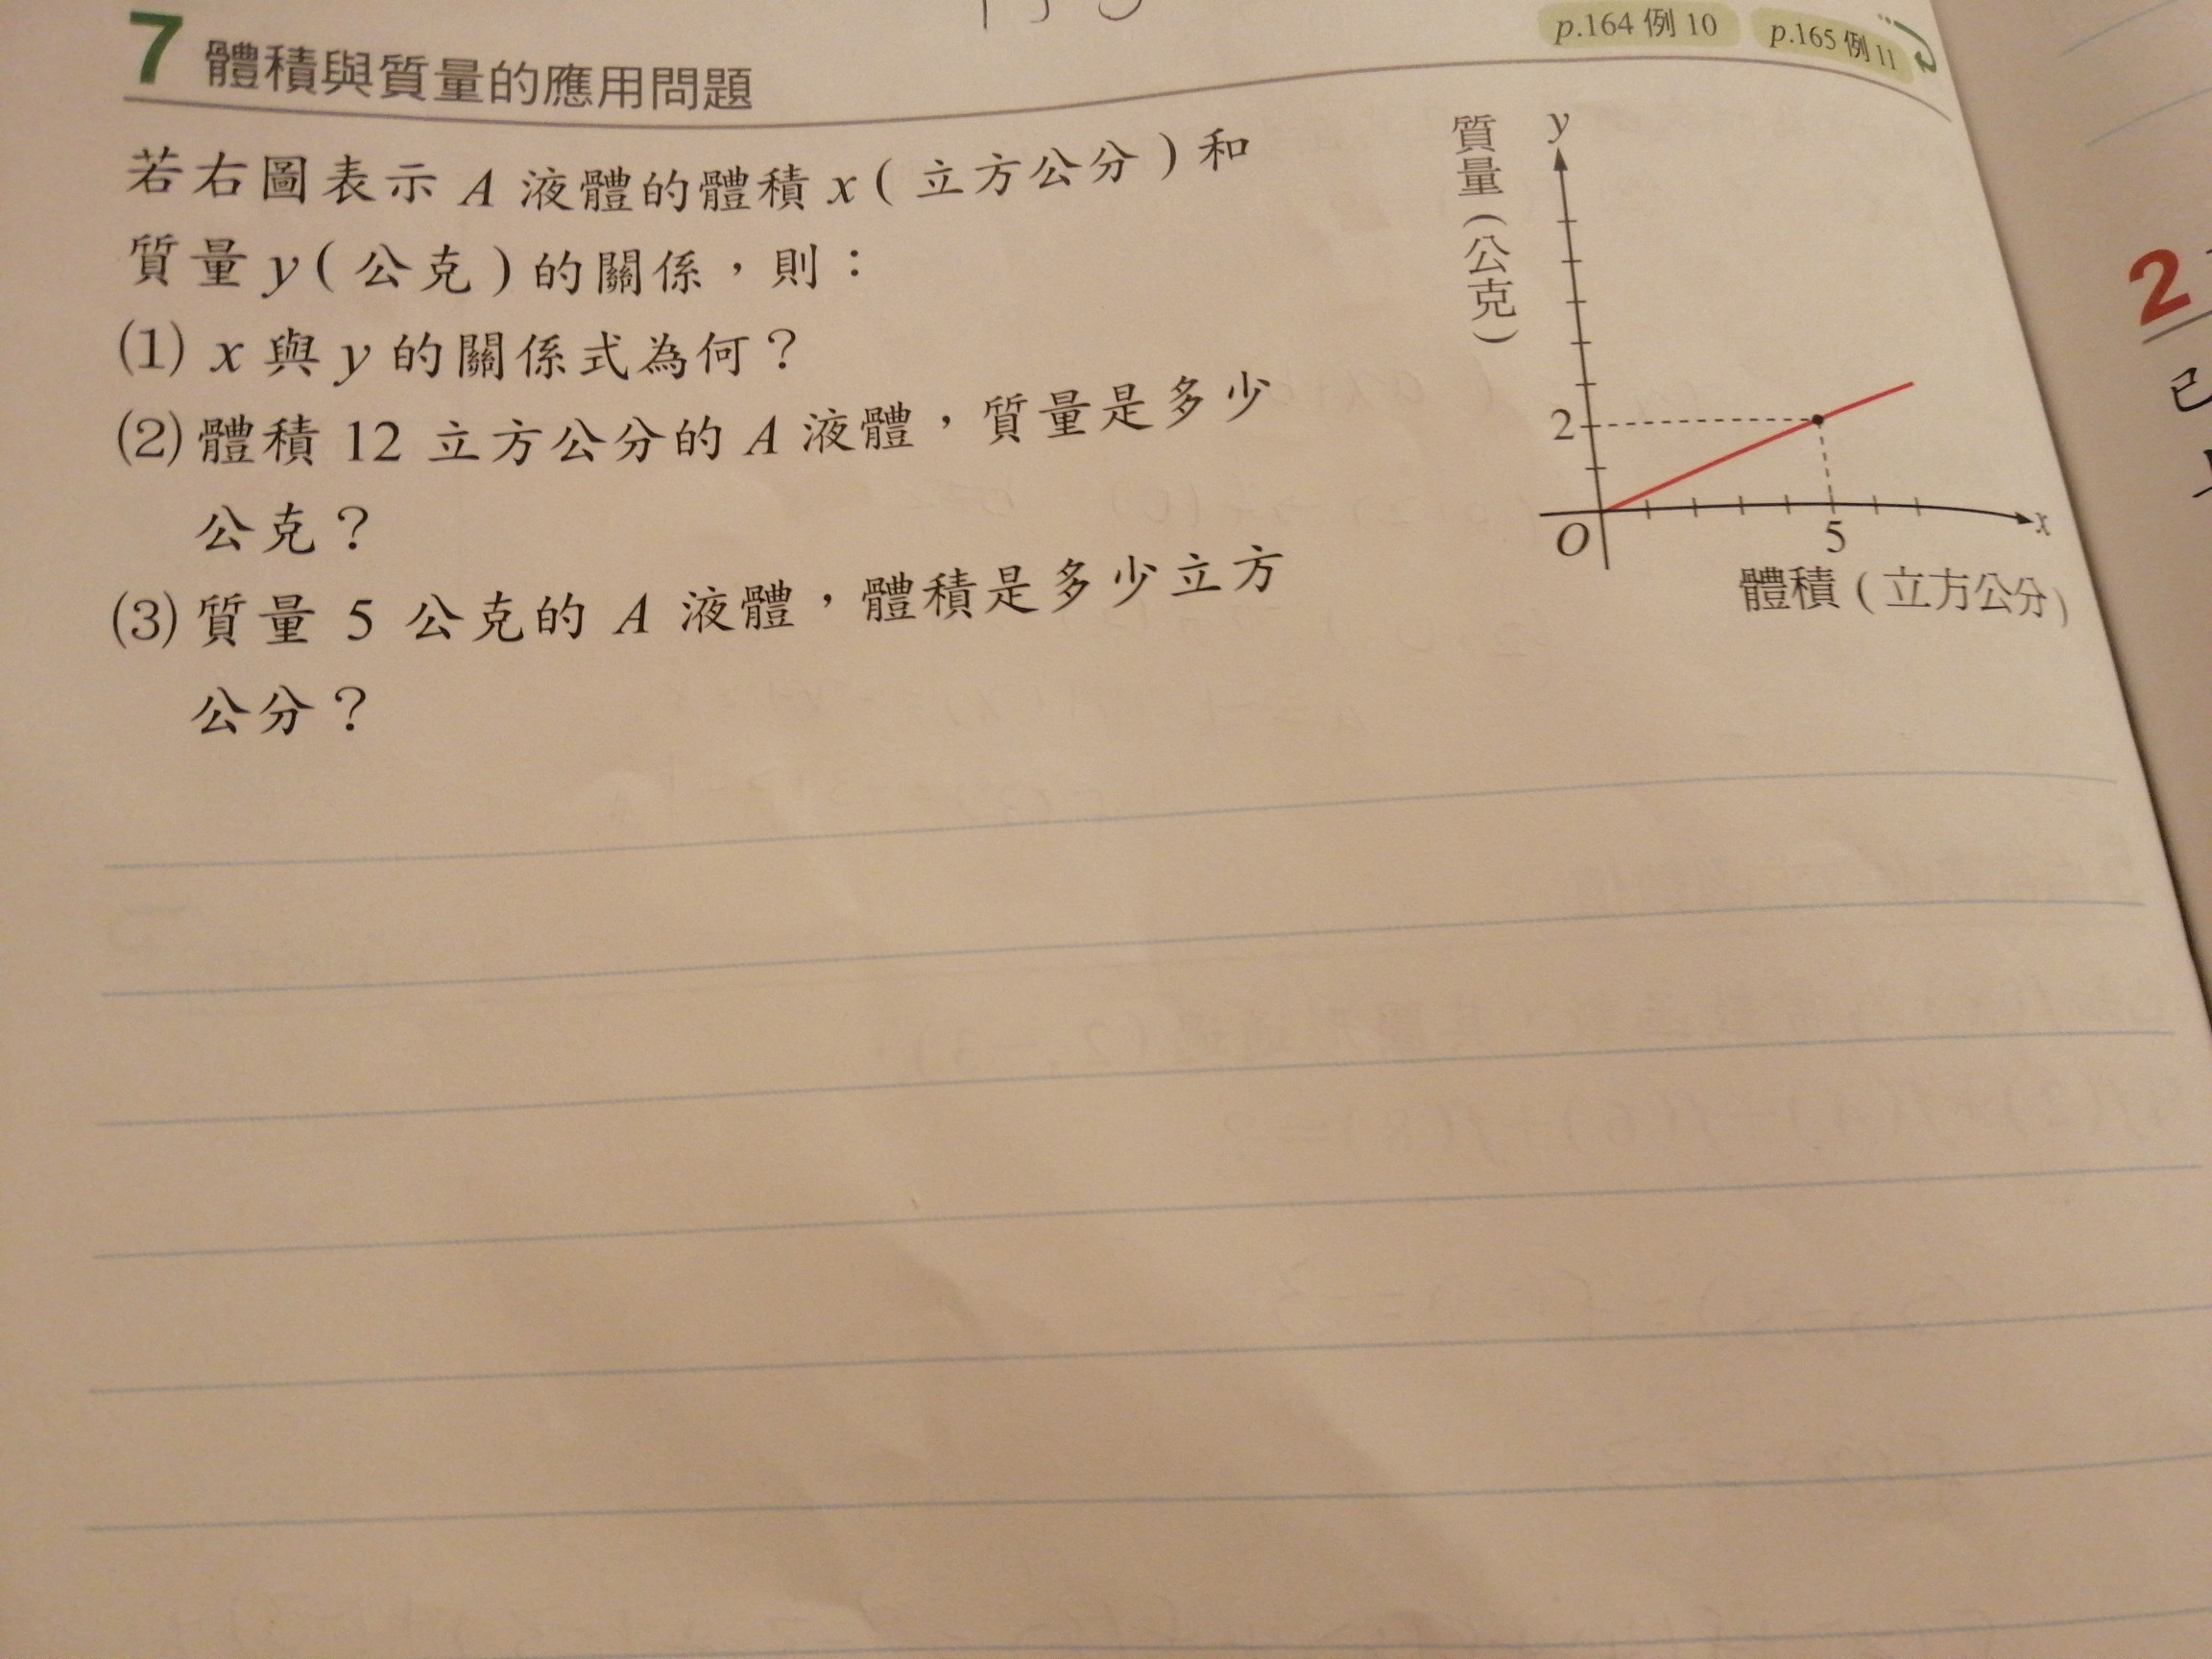 7 體積與質量的應用問題
p.164 例 10 p.165 例 11
若右圖表示 A 液體的體積 x ( 立方公分 ) 和
質量 y ( 公克 ) 的關係，則：
(1) x 與 y 的關係式為何？
(2) 體積 12 立方公分的 A 液體，質量是多少
公克？
(3) 質量 5 公克的 A 液體，體積是多少立方
公分？
質量(公克)
y
2
O
5
x
體積 ( 立方公分 )
2
已